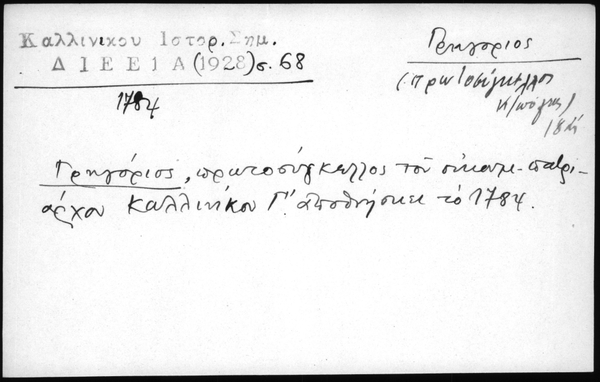 Καλλινικου Ιστορ. Σημ.
Δ Ι Ε Ε 1 Α (1928) σ. 68
1784
Γρηγόριος
(πρωτοσύγκελλος
Κ/πόλεως)
18
Γρηγόριος, πρωτοσύγκελλος τοῦ οἰκουμ. πατρι-
άρχου Καλλινίκου Γ΄. ἀποθνήσκει τὸ 1784.